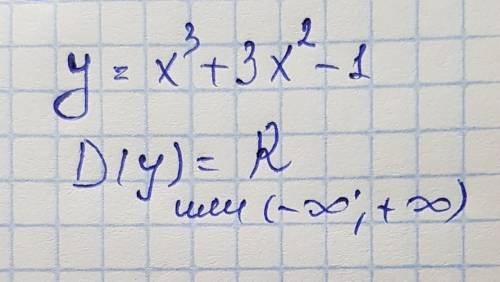 y = x³ + 3x² - 1
D(y) = R
или (-∞; +∞)